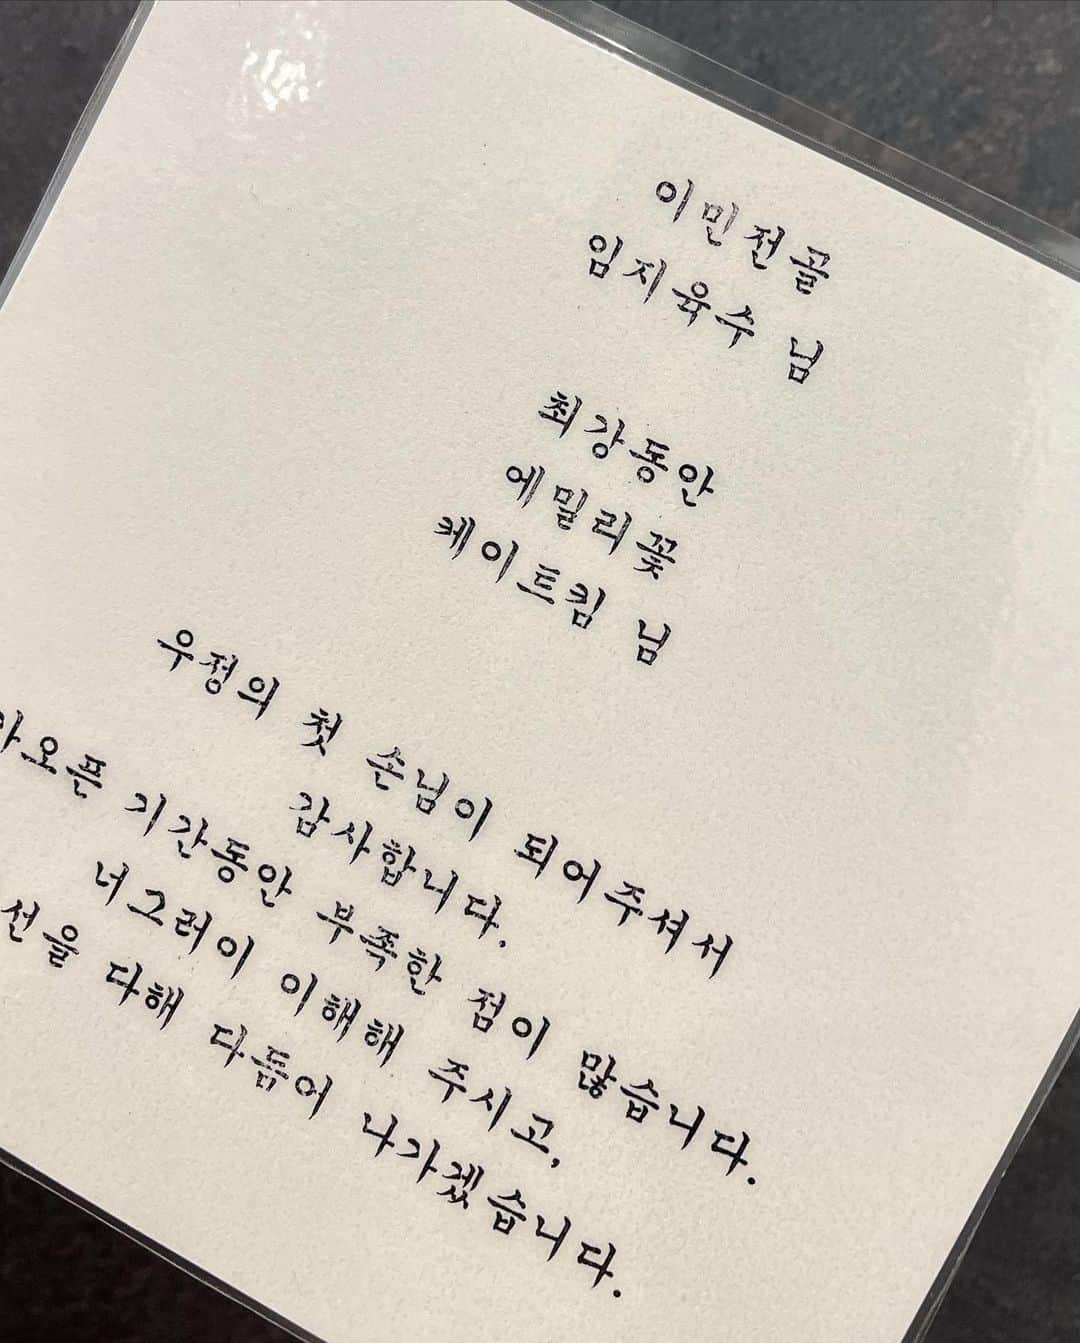 이민전골
임지육수 님
최강동안
에밀리꽃
케이트킴 님
우정의 첫 손님이 되어주셔서
감사합니다.
기간동안 부족한 점이 많습니다.
너그러이 이해해 주시고,
다해 다듬어 나가겠습니다.